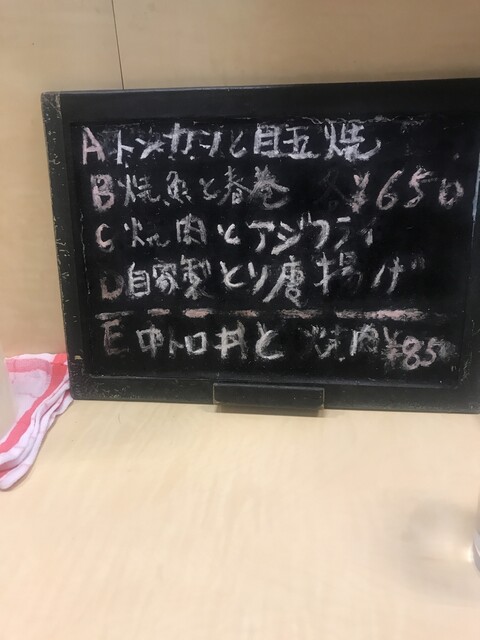 A トンカツと目玉焼
B 焼魚と春巻 各¥650
C 焼肉とアジフライ
D 自家製とり唐揚げ
E 中トロ丼と焼肉¥850